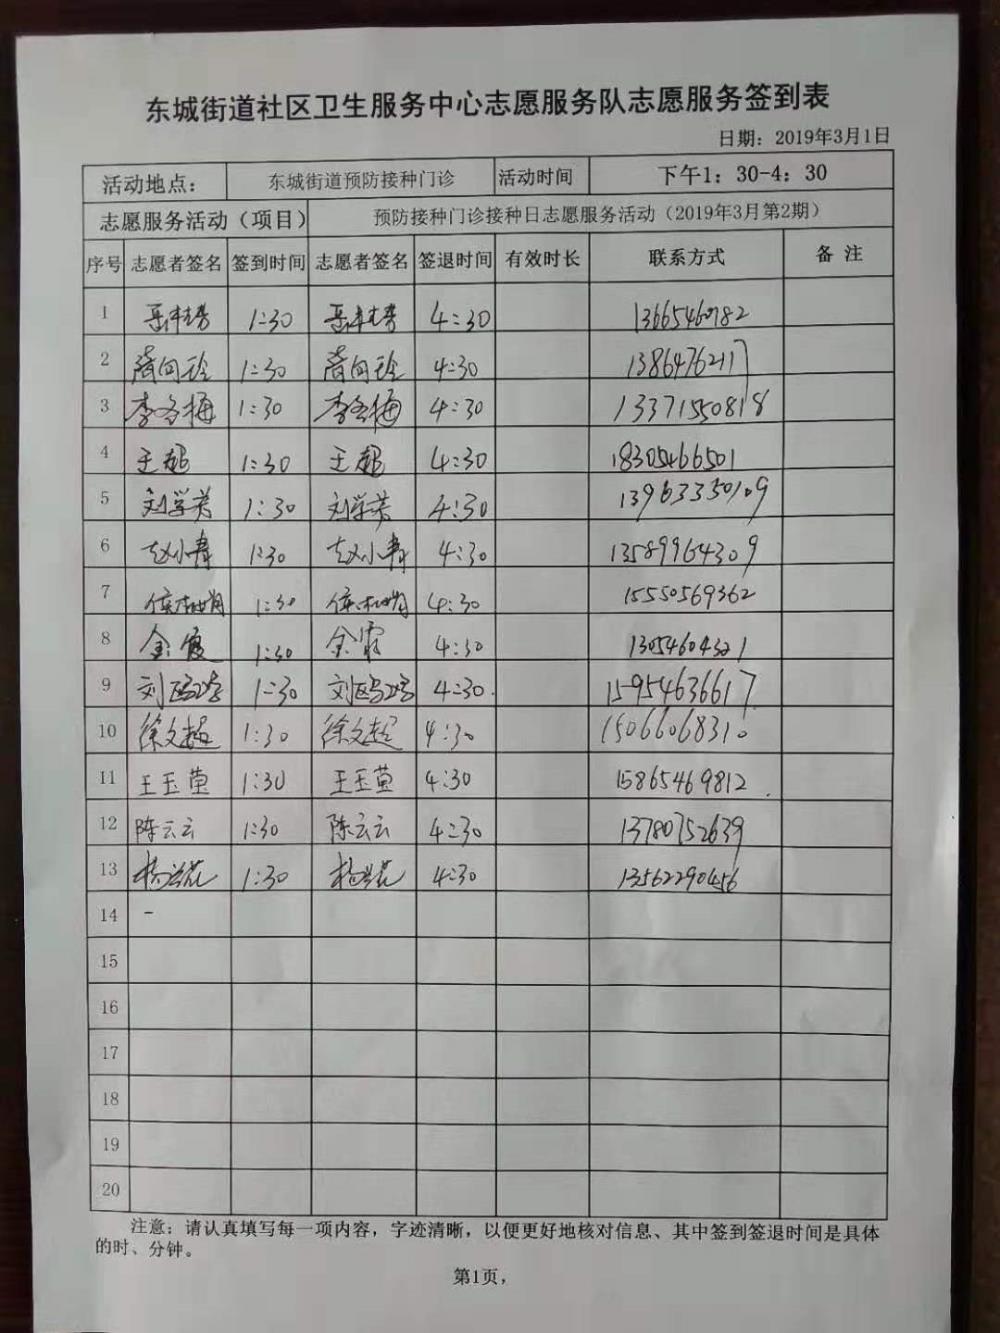 东城街道社区卫生服务中心志愿服务队志愿服务签到表
日期：2019年3月1日
活动地点： 东城街道预防接种门诊 活动时间 下午1：30-4：30
志愿服务活动（项目） 预防接种门诊接种日志愿服务活动（2019年3月第2期）
序号 志愿者签名 签到时间 志愿者签名 签退时间 有效时长 联系方式 备 注
1 1:30 4:30 13665460782
2 1:30 4:30 13864762117
3 李冬梅 1:30 李冬梅 4:30 13371550818
4 王超 1:30 王超 4:30 18305466501
5 刘学芳 1:30 刘学芳 4:30 13963350109
6 赵小青 1:30 赵小青 4:30 13589964309
7 1:30 4:30 15550569362
8 金霞 1:30 金霞 4:30
9 1:30 4:30 15954636617
10 徐文超 1:30 徐文超 4:30 15066068310
11 王玉莹 1:30 王玉莹 4:30 15865469812
12 陈云云 1:30 陈云云 4:30 13780752639
13 杨兰花 1:30 杨兰花 4:30 13562290456
14 -
15
16
17
18
19
20
注意：请认真填写每一项内容，字迹清晰，以便更好地核对信息、其中签到签退时间是具体
的时、分钟。
第1页，